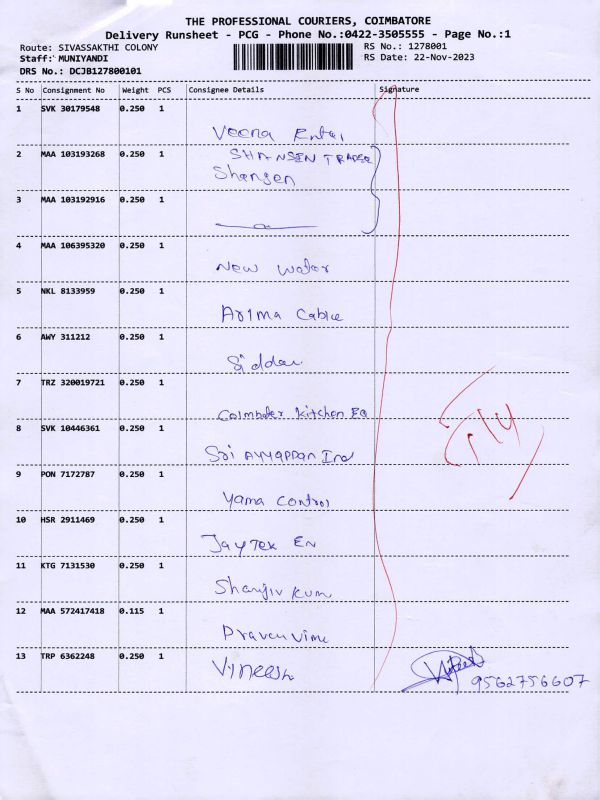 THE PROFESSIONAL COURIERS, COIMBATORE
Delivery Runsheet - PCG - Phone No.:0422-3505555 - Page No.:1
Route: SIVASSAKTHI COLONY
RS No.: 1278001
Staff: MUNIYANDI
RS Date: 22-Nov-2023
DRS No.: DCJB127800101
S No Consignment No Weight PCS Consignee Details Signature
1 SVK 30179548 0.250 1
Veena
2 MAA 103193268 0.250 1 SHANSEN TRADER
Shansen
3 MAA 103192916 0.250 1
4 MAA 106395320 0.250 1
New Water
5 NKL 8133959 0.250 1
Arima Cable
6 AWY 311212 0.250 1
Siddar
7 TRZ 320019721 0.250 1
Coimbator Kitchen Eq
8 SVK 10446361 0.250 1
Sri Ayyappan Ind
9 PON 7172787 0.250 1
Yama Control
10 HSR 2911469 0.250 1
Jaytek En
11 KTG 7131530 0.250 1
Shanjiv Kum
12 MAA 572417418 0.115 1
Praven Vime
13 TRP 6362248 0.250 1
Vineesh
9562756607